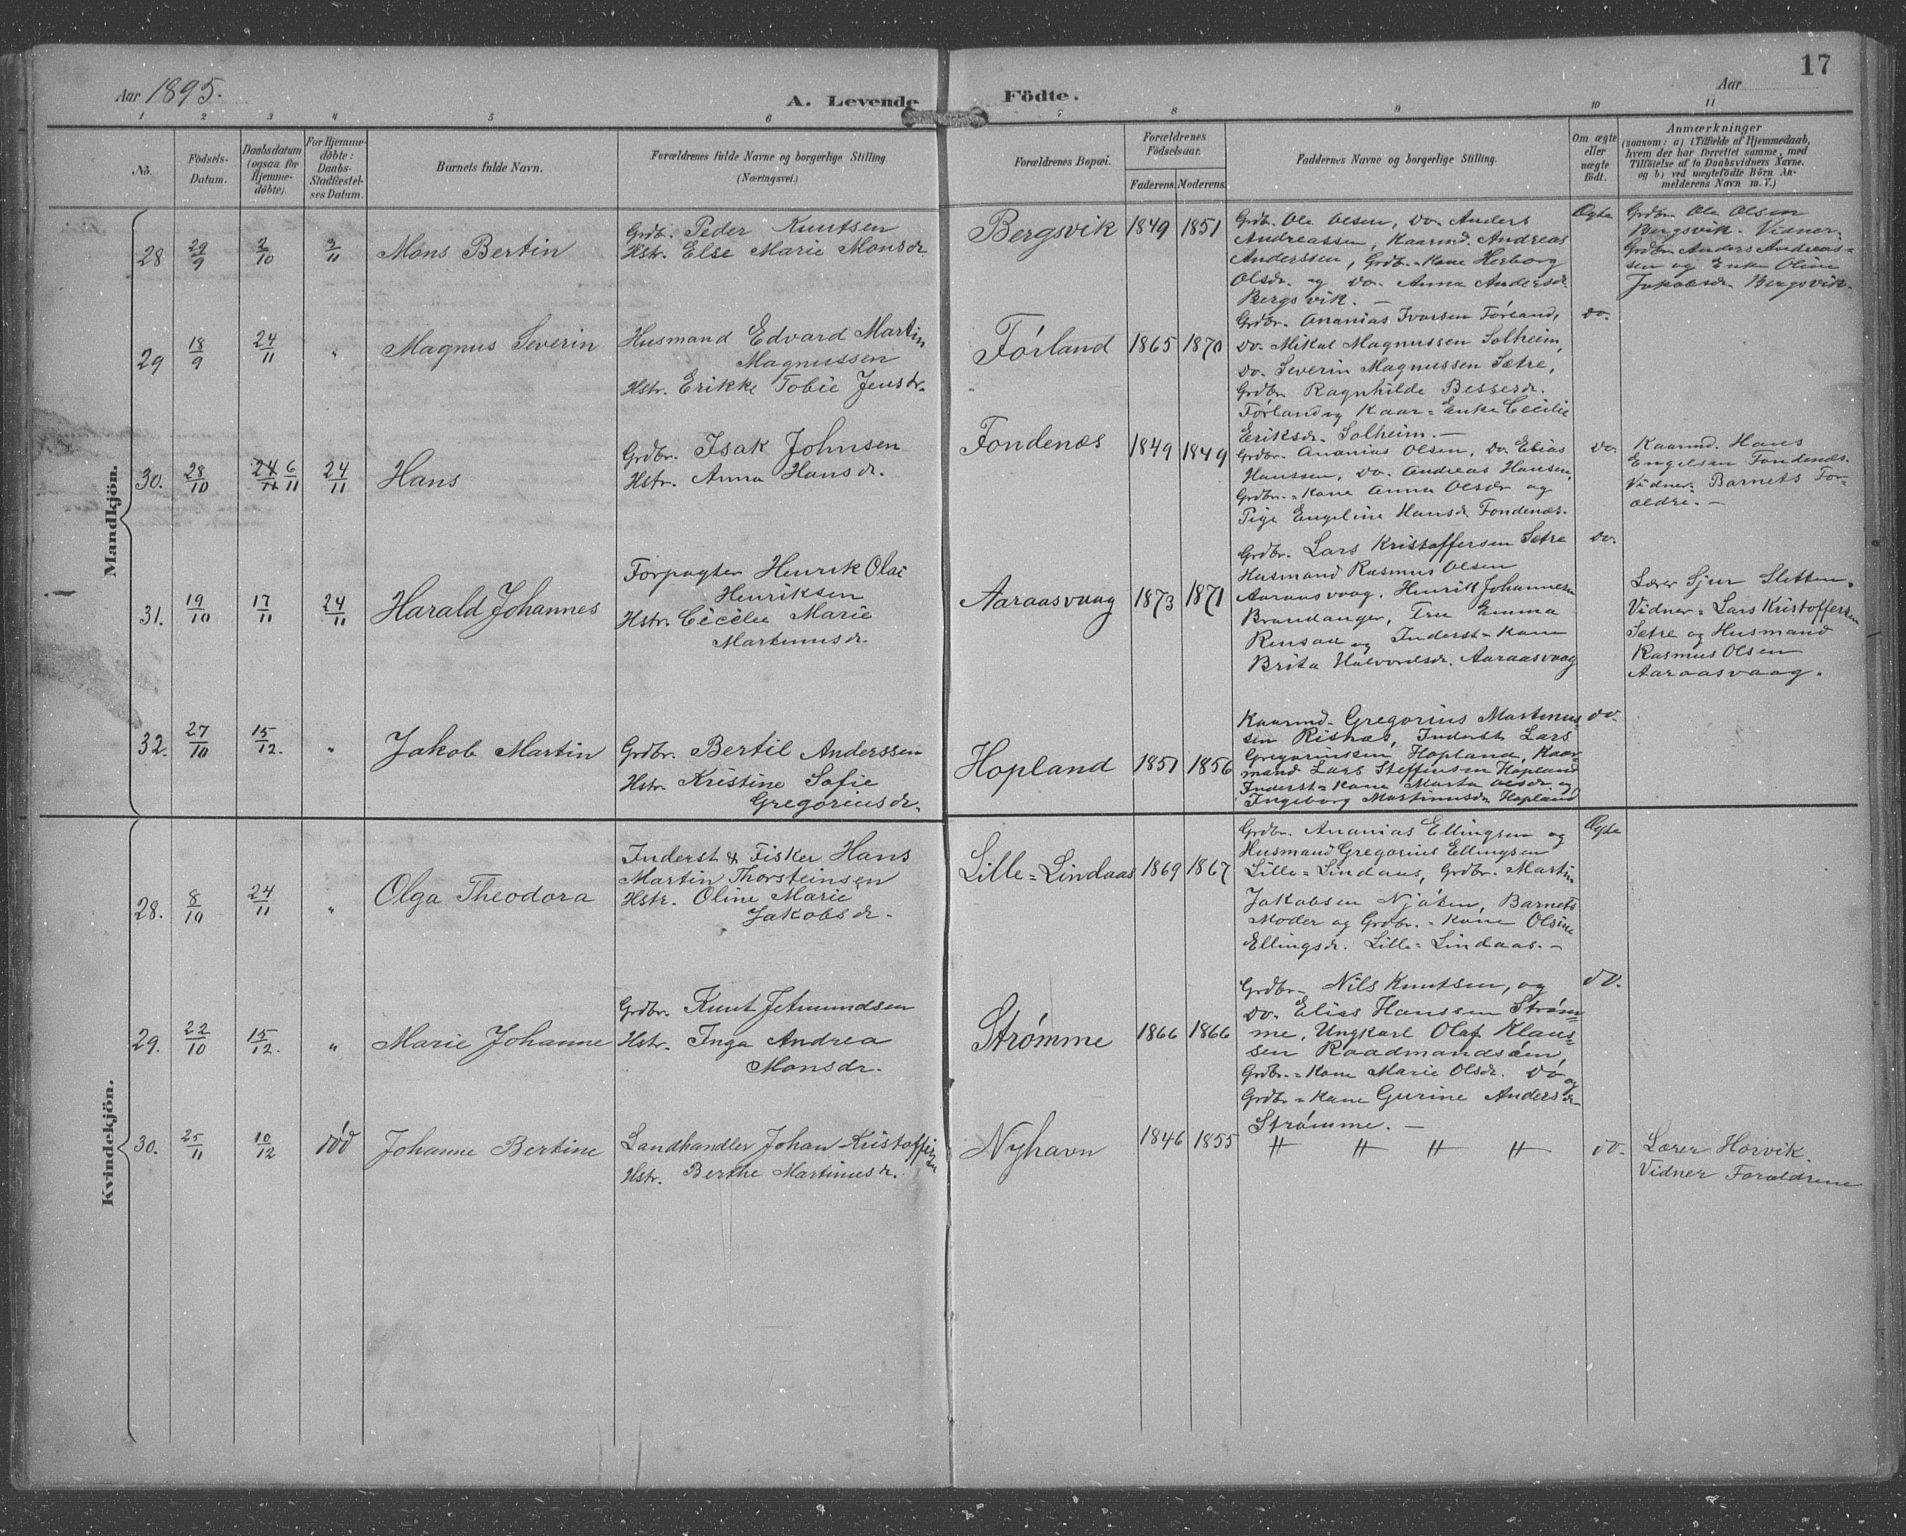 17
Aar 1895.
A. Levende Födte.
Aar
1 2 3 4 5 6 7 8 9 10 11
No.
Födsels-Datum.
Daabsdatum (ogsaa for Hjemme-döbte).
For Hjemme-döbte: Daabs-Stadfæstel-ses Datum.
Barnets fulde Navn.
Forældrenes fulde Navne og borgerlige Stilling.
(Næringsvei.)
Forældrenes Bopæl.
Forældrenes Födselsaar.
Faderens. Moderens.
Faddernes Navne og borgerlige Stilling.
Om ægte eller uægte födt.
Anmærkninger
(saasom: a) i Tilfælde af Hjemmedaab,
hvem der har forrettet samme, med
Tilföielse af to Daabsvidners Navne.
og b) ved uægtefödte Börn An-
melderens Navn m. V.)
Mandkjön.
28 29/9 2/10 3/11 Mons Bertin
Grdbr. Peder Knutsen
Hstr. Else Marie Monsdr
Bergsvik 1849 1851
Grdbr. Ole Olsen, do. Anders
Andreassen, Kaarmd. Andreas
Anderssen, Grdbr.-Kone Herborg
Olsdr. og do. Anna Andersdr.
Bergsvik. —
Ægte
Grdbr. Ole Olsen
Bergsvik. Vidner
Grdbr. Anders Andreas-
sen og Enke Oline
Jakobsdr. Bergsvik.
29 18/9 24/11 " Magnus Severin
Husmand Edvard Martin
Magnussen
Hstr. Erikke Tobie Jensdr.
Førland 1865 1870
Grdbr. Ananias Ivarsen Førland,
do. Mikal Magnussen Solheim,
do. Severin Magnussen Sætre,
Grdbr. Ragnhilde Bessesdr.
Førland og Kaar-Enke Cecilie
Eriksdr. Solheim. —
do.
30. 28/10 24/11 6/11 24/11 Hans
Grdbr. Isak Johnsen
Hstr. Anna Hansdr.
Fondenæs 1849 1849
Grdbr. Ananias Olsen, do. Elias
Hanssen, do. Andreas Hansen,
Grdbr.-Kone Anna Olsdr og
Pige Engeline Hansdr Fondenæs.
do.
Kaarmd. Hans
Engelsen Fondenæs.
Vidner: Barnets For-
ældre. —
31. 19/10 17/11 24/11 Harald Johannes
Forpagter Henrik Olai
Henriksen
Hstr. Cicelie Marie
Martinusdr.
Aaraasvaag 1873 1871
Grdbr. Lars Kristoffersen Sætre
Husmand Rasmus Olsen
Aaraasvaag. Henrik Johannesen
Brandanger, Fru Emma
og Inderst-Kone
Brita Halvorsdr. Aaraasvaag
do.
Lærer Sjur Sletten.
Vidner: Lars Kristoffersen
Sætre og Husmand
Rasmus Olsen
Aaraasvaag.
32. 27/10 15/12. " Jakob Martin
Grdbr. Bertil Anderssen
Hstr. Kristine Sofie
Gregoriusdr.
Hopland 1851 1856
Kaarmd. Gregorius Martinus-
sen Risnæs, Inderst Lars
Gregoriussen, Hopland, Kaar-
mand Lars Steffensen Hopland
Inderst-Kone Marta Olsdr. og
Ingeborg Martinusdr Hopland
do.
Kvindekjön.
28. 8/10 24/11 " Olga Theodora
Inderst & Fisker Hans
Martin Thorsteinsen
Hstr. Oline Marie
Jakobsdr.
Lille-Lindaas 1869 1867
Grdbr. Ananias Ellingsen og
Husmand Gregorius Ellingsen
Lille-Lindaas, Grdbr. Martin
Jakobsen Njøten, Barnets
Moder og Grdbr.-Kone Olsine
Ellingsdr. Lille-Lindaas. —
Ægte
29. 22/10 15/12. " Marie Johanne
Grdbr. Knut Jetmundsen
Hstr. Inga Andrea
Monsdr.
Strømme 1866 1866
Grdbr. Nils Knutsen, og
do. Elias Hanssen Strøm-
me, Ungkarl Olaf Klaus-
sen Raadmandsøen,
Grdbr.-Kone Marie Olsdr. do og
Grdbr-Kone Gurine Andersdr
Strømme. —
do.
30. 25/11 10/12 død Johanne Bertine
Landhandler Johan Kristoffersen
Hstr. Berthe Martinusdr.
Nyhavn 1846 1855
" " " "
do.
Lærer Horvik.
Vidner Forældrene